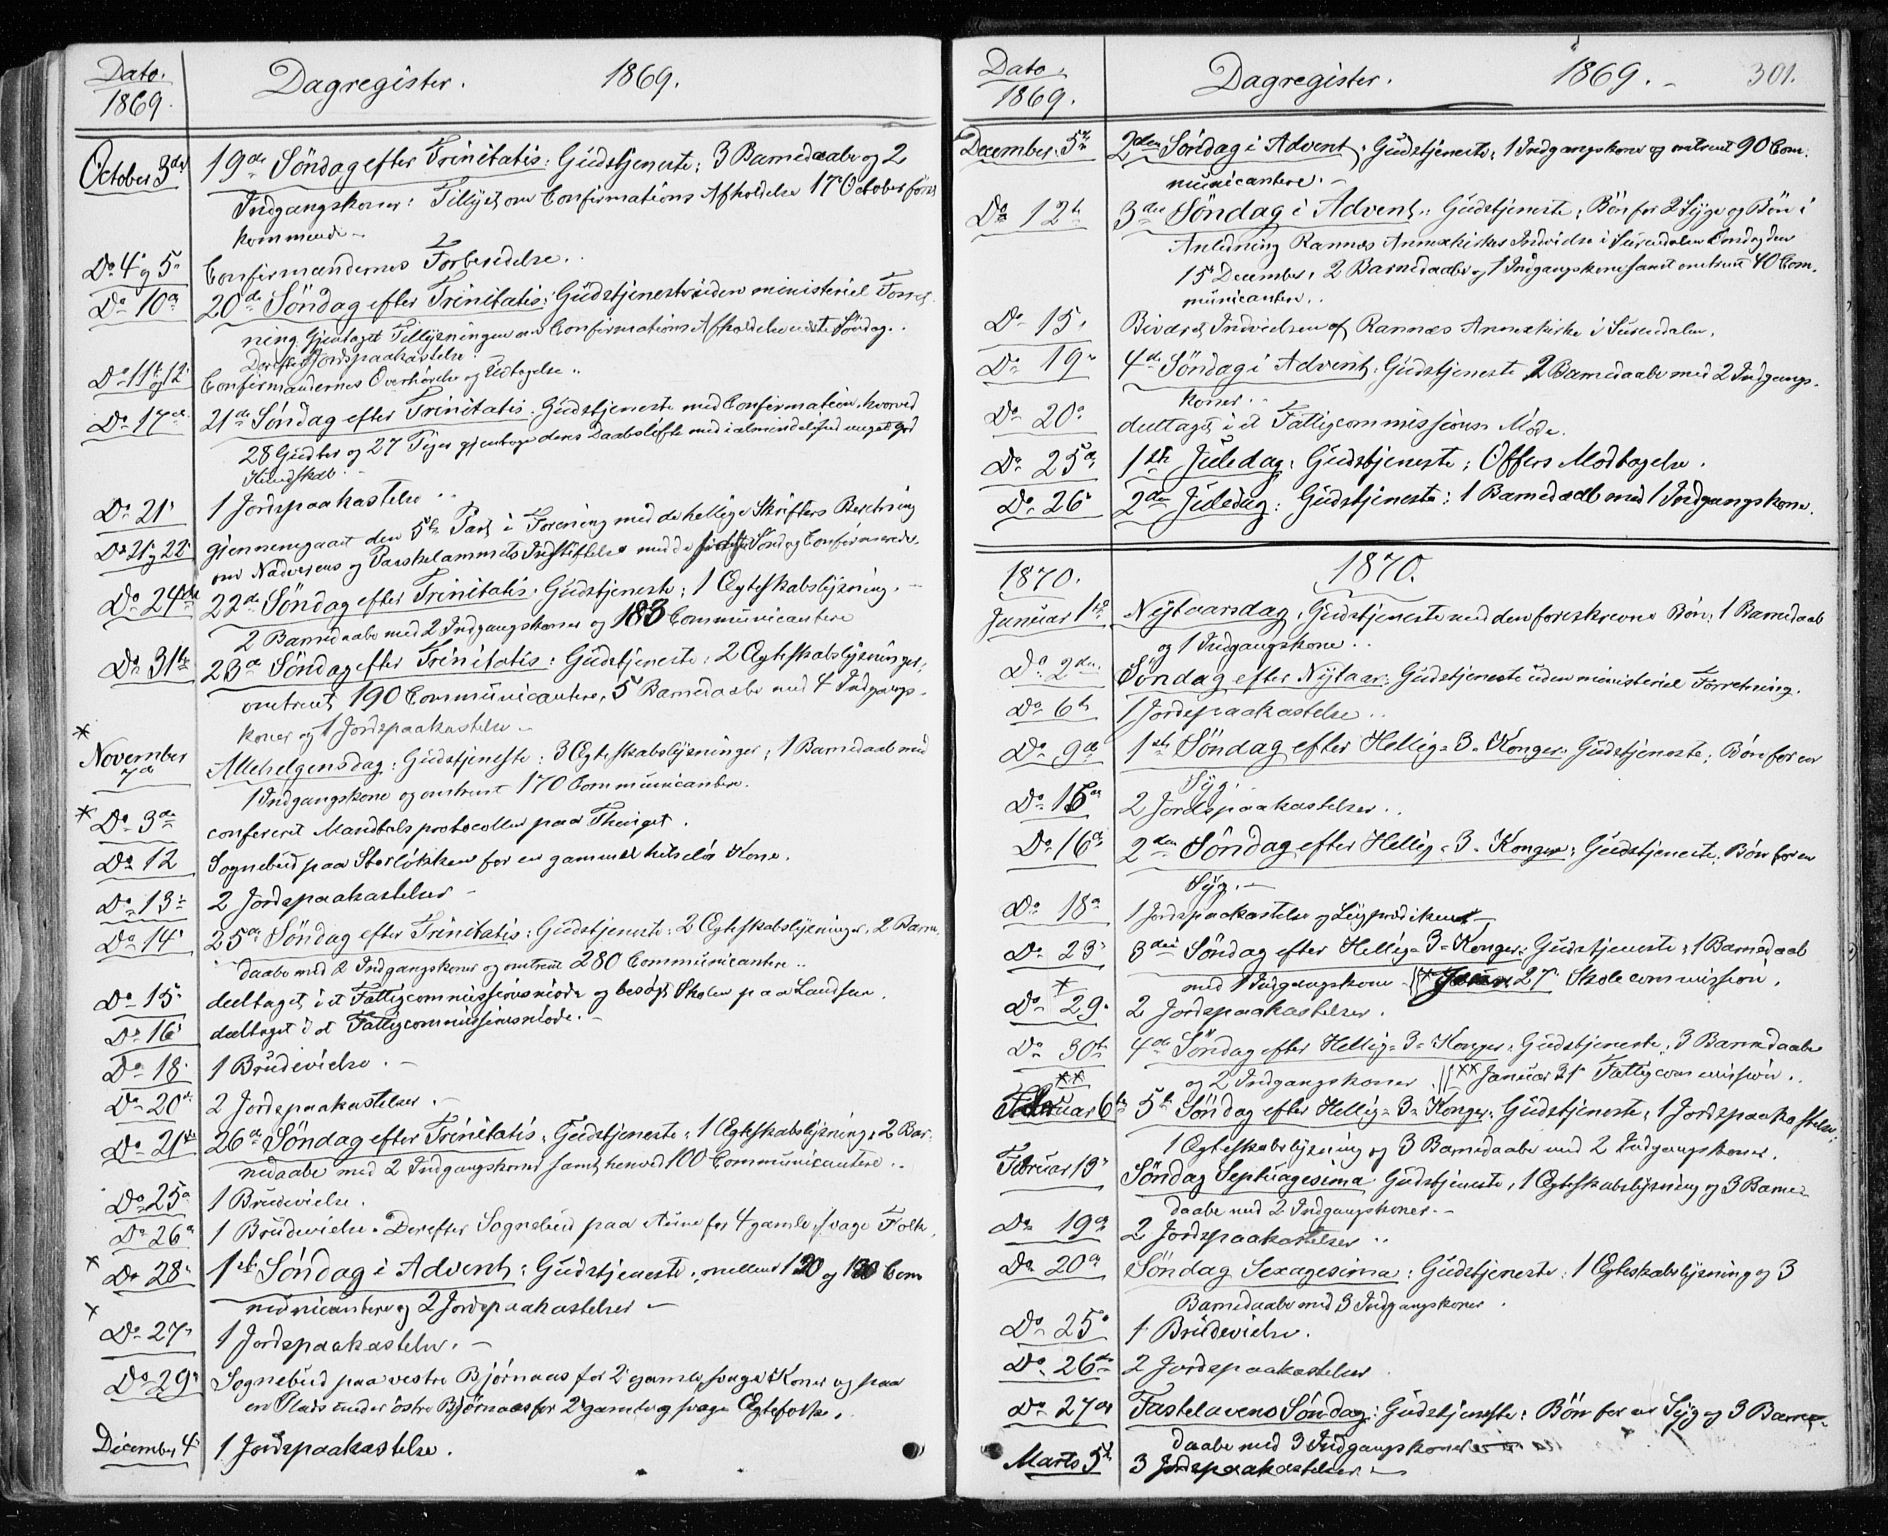 Dato. 1869.
Dagregister. 1869.
October 3die 19de Söndag efter Trinitatis: Gudstjeneste; 3 Barnedaabe og 2
Indgangskoner: Tillyst om Confirmations Afholdelse 17 October først
kommende –
Do 4 og 5. Confirmandernes Forberedelse.
Do 10de 20de Söndag efter Trinitatis: Gudstjeneste uden ministeriel Forret-
ning. Gjentaget Tillysningen om Confirmations Afholdelse næste Søndag.
Derefter Jordspaakastelse.
Do 11te og 12. Confirmandernes Overhørelse og Udtagelse..
Do 17de 21de Søndag efter Trinitatis. Gudstjeneste med Confirmation, hvorved
28 Gutter og 27 Piger gjentoge deres Daabsløfte med i almindelighed meget god
Kundskab. –
Do 21. 1 Jordspaakastelse ..
Do 21 og 22. gjennemgaaet den 5te Part i Forening med de hellige Skrifters Beretning
om Nadverens og Paaskelammets Indstiftelse med de sidste Søndag Confirmerede.
Do 24de 22de Søndag efter Trinitatis. Gudstjeneste; 1 Ægteskabslysning. –
2 Barnedaabe med 2 Indgangskoner og 183 Communicantere
Do 31te 23de Søndag efter Trinitatis: Gudstjeneste: 2 Ægteskabslysninger,
omtrent 190 Communicantere, 5 Barnedaabe med 4 Indgangs-
koner og 1 Jordspaakastelse –
*
November 7de Allehelgensdag: Gudstjeneste: 3 Ægteskabslysninger; 1 Barnedaab med
1 Indgangskone og omtrent 170 Communicantere.
* Do 3de confereret Mandtalsprotocollen paa Thinget.
Do 12 Sognebud paa Storløkken for en gammel helseløs Kone.
Do 13. 2 Jordspaakastelser –
Do 14. 25de Søndag efter Trinitatis: Gudstjeneste: 2 Ægteskabslysninger, 2 Barne-
daabe med 2 Indgangskoner og omtrent 280 Communicantere..
Do 15. deeltaget i et Fattigcommissionsmøde og besøgt Skolen paa Landsem.
Do 16. deeltaget i et Fattigcommissionsmøde. –
Do 18. 1 Brudevielse. –
Do 20de 2 Jordspaakastelser. –
Do 21de 26de Søndag efter Trinitatis: Gudstjeneste: 1 Ægteskabslysning, 2 Bar-
nedaabe med 2 Indgangskoner samt henved 100 Communicantere..
Do 25de 1 Brudevielse.
Do 26de 1 Brudevielse. Derefter Sognebud paa Aune for 4 gamle svage Folk.
* Do 28. 1ste Søndag i Advent: Gudstjeneste, mellem 120 og 130 Com
municantere og 2 Jordspaakastelser –
* Do 27. 1 Jordspaakastelse. –
Do 29. Sognebud paa vestre Bjørnaas for 2 gamle svage Koner og paa
en Plads under østre Bjørnaas for 2 gamle og svage Ægtefolk.
December 4. 1 Jordspaakastelse.
Dato. 1869.
Dagregister. 1869. – 301.
December 5te 2den Søndag i Advent, Gudstjeneste, 1 Indgangskone og omtrent 90 Com-
municantere. –
Do 12te 3die Søndag i Advent: Gudstjeneste, Bøn for 2 Syge og Bøn i
Anledning Rannæs Annexkirkes Indvielse i Surendalen Onsdag den
15de December, 2 Barnedaabe og 1 Indgangskone samt omtrent 40 Com-
municantere..
Do 15. Bivaaret Indvielsen af Rannæs Annexkirke i Surendalen.
Do 19. 4de Søndag i Advent, Gudstjeneste 2 Barnedaabe med 2 Indgangs-
koner..
Do 20. deeltaget i et Fattigcommissions Møde.
Do 25de 1ste Juledag, Gudstjeneste; Offers Modtagelse.
Do 26. 2den Juledag: Gudstjeneste: 1 Barnedaab med 1 Indgangskone.
1870. 1870.
Januar 1ste Nytaarsdag, Gudstjeneste med den foreskrevne Bøn, 1 Barnedaab
og 1 Indgangskone..
Do 2den. Søndag efter Nytaar: Gudstjeneste uden ministeriel Forretning.
Do 6te 1 Jordspaakastelse..
Do 9de 1ste Søndag efter Hellig-3-Konger: Gudstjeneste, Bøn for en
Syg.
Do 15de 2 Jordspaakastelser..
Do 16de 2den Søndag efter Hellig-3-Konger; Gudstjeneste, Bøn for en
Syg. –
Do 18de 1 Jordspaakastelse og Liigprædiken –
Do 23. 3die Søndag efter Hellig-3-Konger: Gudstjeneste, 1 Barnedaab
med 1 Indgangskone ||* Januar 27. Skolecommission.
*
Do 29. 2 Jordspaakastelser.
Do 30te 4de Søndag efter Hellig-3-Konger, Gudstjeneste, 3 Barnedaabe
og 2 Indgangskoner. ||** Januar 31. Fattigcommission..
**
Februar 6te 5te Søndag efter Hellig-3-Konger; Gudstjeneste, 1 Jordspaakastelse,
1 Ægteskabslysning og 3 Barnedaabe med 2 Indgangskoner.
Februar 13. Søndag Septuagesima Gudstjeneste, 1 Ægteskabslysning og 3 Barne-
daabe med 2 Indgangskoner. –
Do 19de 2 Jordspaakastelser ..
Do 20de Søndag Sexagesima: Gudstjeneste: 1 Ægteskabslysning og 3
Barnedaabe med 3 Indgangskoner.
Do 25de 1 Brudevielse.
Do 26de 2 Jordspaakastelser
Do 27de Fastelavens Søndag: Gudstjeneste: Bøn for en Syg og 3 Barne-
daabe med 3 Indgangskoner
Marts 5te 3 Jordspaakastelser –